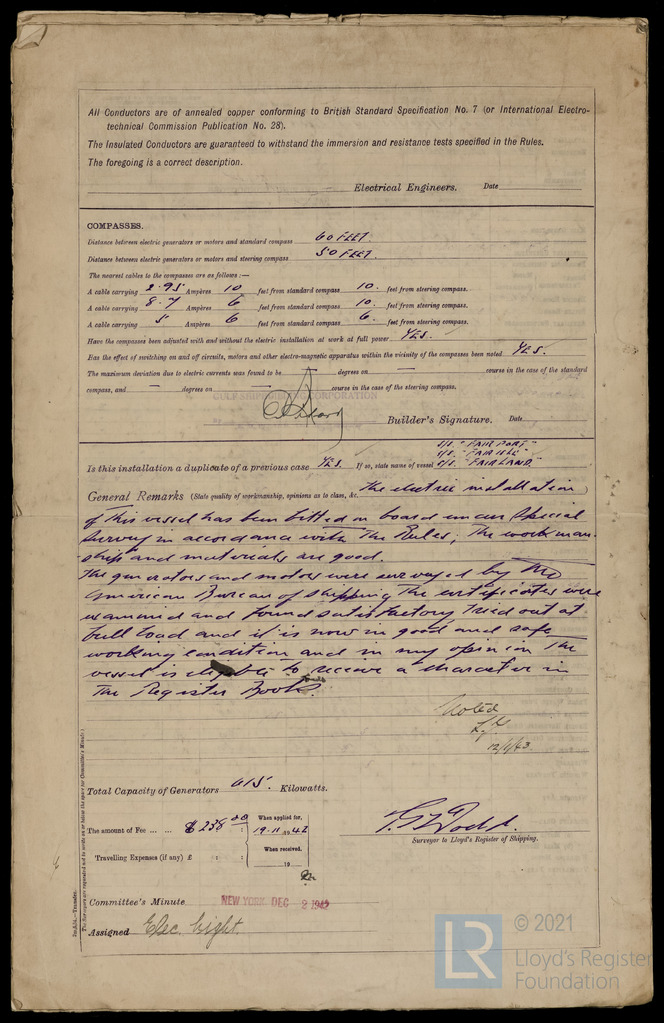 All Conductors are of annealed copper conforming to British Standard Specification No. 7 (or International Electro-
technical Commission Publication No. 28).
The Insulated Conductors are guaranteed to withstand the immersion and resistance tests specified in the Rules.
The foregoing is a correct description.
Electrical Engineers. Date
COMPASSES.
Distance between electric generators or motors and standard compass 60 FEET.
Distance between electric generators or motors and steering compass 50 FEET.
The nearest cables to the compasses are as follows:—
A cable carrying 2.95 Ampères 10 feet from standard compass 10. feet from steering compass.
A cable carrying 8.7 Ampères 6 feet from standard compass 10. feet from steering compass.
A cable carrying 5 Ampères 6 feet from standard compass 6. feet from steering compass.
Have the compasses been adjusted with and without the electric installation at work at full power YES.
Has the effect of switching on and off circuits, motors and other electro-magnetic apparatus within the vicinity of the compasses been noted YES.
The maximum deviation due to electric currents was found to be — degrees on — course in the case of the standard
compass, and — degrees on — course in the case of the steering compass.
GULF SHIPBUILDING CORPORATION
Builder's Signature. Date
S/S. "FAIRPORT"
S/S. "FAIRISLE"
Is this installation a duplicate of a previous case YES. If so, state name of vessel S/S. "FAIRLAND."
General Remarks (State quality of workmanship, opinions as to class, &c. The electric installation
of this vessel has been fitted on board under Special
Survey in accordance with the Rules, The workman-
ship and materials are good.
The generators and motors were surveyed by the
American Bureau of Shipping The certificates were
examined and found satisfactory, tried out at
full load and it is now in good and safe
working condition and in my opinion the
vessel is eligible to receive a character in
the Register Book.
Noted
12/1/43
Total Capacity of Generators 615. Kilowatts.
The amount of Fee ... ... $ 238.00 : When applied for, 19.11.1942
When received,
Travelling Expenses (if any) £ : : 19
Surveyor to Lloyd's Register of Shipping.
Committee's Minute NEW YORK DEC 2 1942
Assigned Elec. Light.
© 2021
LR Lloyd's Register
Foundation